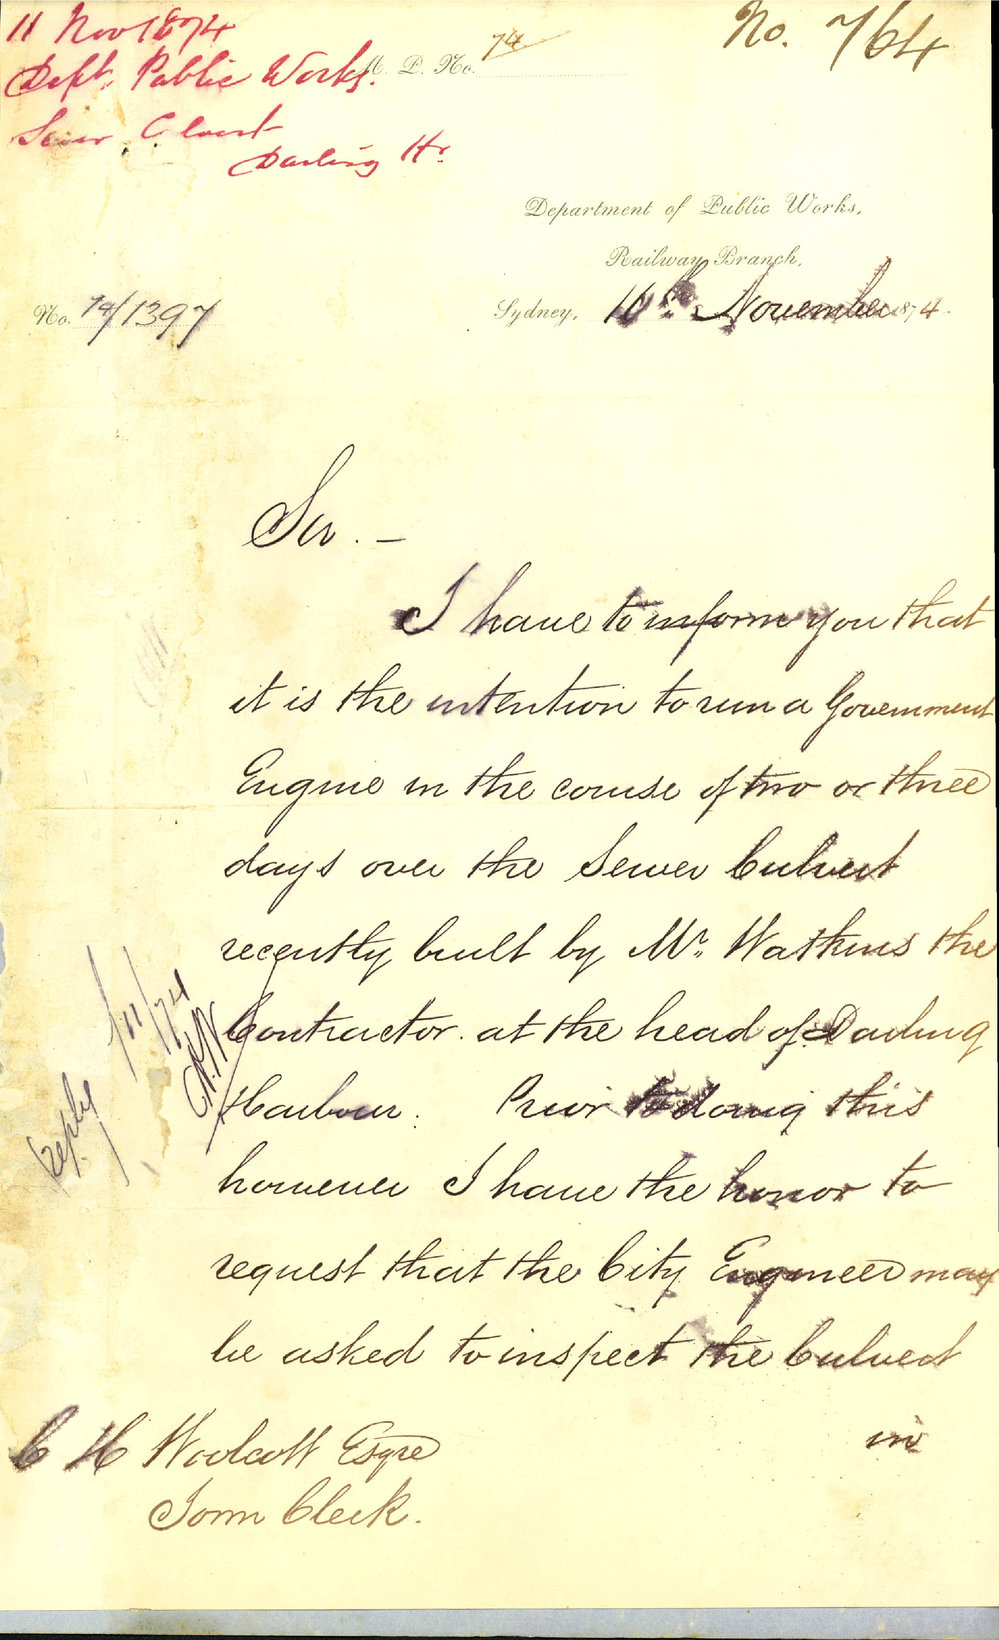 11 Nov 1874
Dept. Public Works.
Sewer Culvert
Darling Hr.
M. P. No. 74
No. 764
Department of Public Works,
Railway Branch,
No. 74/1397
Sydney, 10th November 1874.
Sir. —
I have to inform you that
it is the intention to run a Government
Engine in the course of two or three
days over the Sewer Culvert
recently built by Mr. Watkins the
Contractor. at the head of Darling
Harbour. Prior to doing this
however I have the honor to
request that the City Engineer may
be asked to inspect the Culvert
in
C H Woolcott Esqre
Town Clerk.
Reply
/11/74